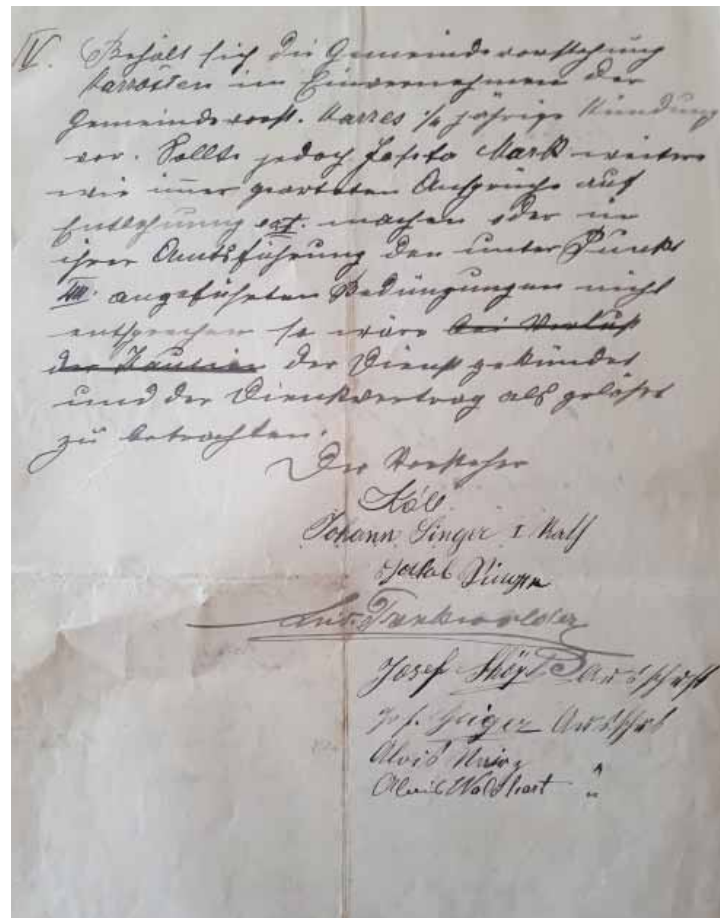 IV. Behält sich die Gemeindevorstehung
Karrösten im Einvernehmen der
Gemeindevorst. Karres ¼ jährige Kündung
vor. Sollte jedoch Josefa Mark weitere
wie imer gearteten Ansprüche auf
Entlohnung ect. machen oder in
ihrer Amtsführung den unter Punkt
III. angeführten Bedingungen nicht
entsprechen so wäre bei Verlust
der Kaution der Dienst gekündet
und der Dienstvertrag als gelöst
zu betrachten.
Der Vorsteher
Köll
Johann Singer I Rath
Jakob Singer
Josef Ausschuß
Jos. Geiger Ausschuß
Alois
Alois "